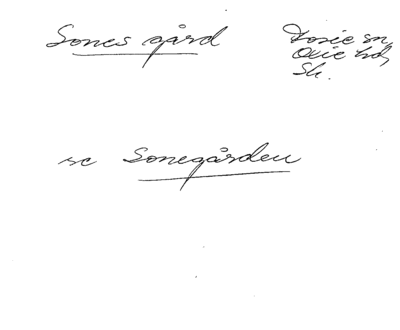 Sones gård
Fosie sn,
Oxie hd,
Sk.
se Sonegården